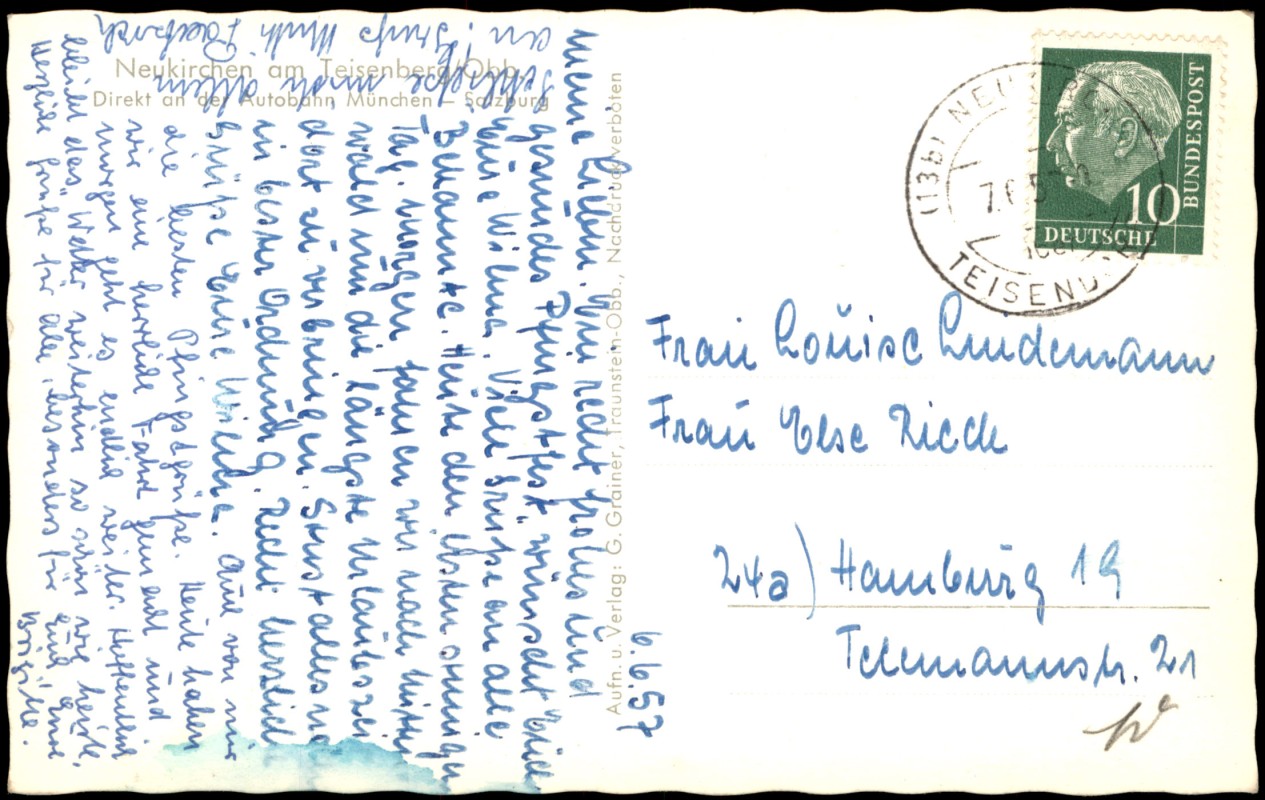 Neukirchen am Teisenberg/Obb.
Direkt an der Autobahn München – Salzburg
Aufn. u. Verlag: G. Grainer, Traunstein-Obb., Nachdruck verboten
6.6.57
Meine Lieben! Ein recht frohes und
gesundes Pfingstfest, wünscht Euch
Eure Wilma. Viele Grüße an alle
Bekannte. Heute den ersten sonnigen
Tag. Morgen fahren wir nach Mitten
wald um die längste Urlaubszeit
dort zu verbringen. Sonst alles
in bester Ordnung. Recht herzliche
Grüße Eure Wilma. Auch von mir
die besten Pfingstgrüße. Heute haben
wir eine herrliche Fahrt gemacht und
morgen geht es endlich weiter. Hoffentlich
bleibt das Wetter weiterhin so schön wie heute.
Herzliche Grüße für alle, besonders für Euch Eure
Brigitte.
schließe mich allem
an. Gruß
Frau Louise Lindemann
Frau Else Riede
24a) Hamburg 19
Telemannstr. 21
DEUTSCHE
BUNDESPOST
10
(13b) NEUKIRCHEN
TEISEND